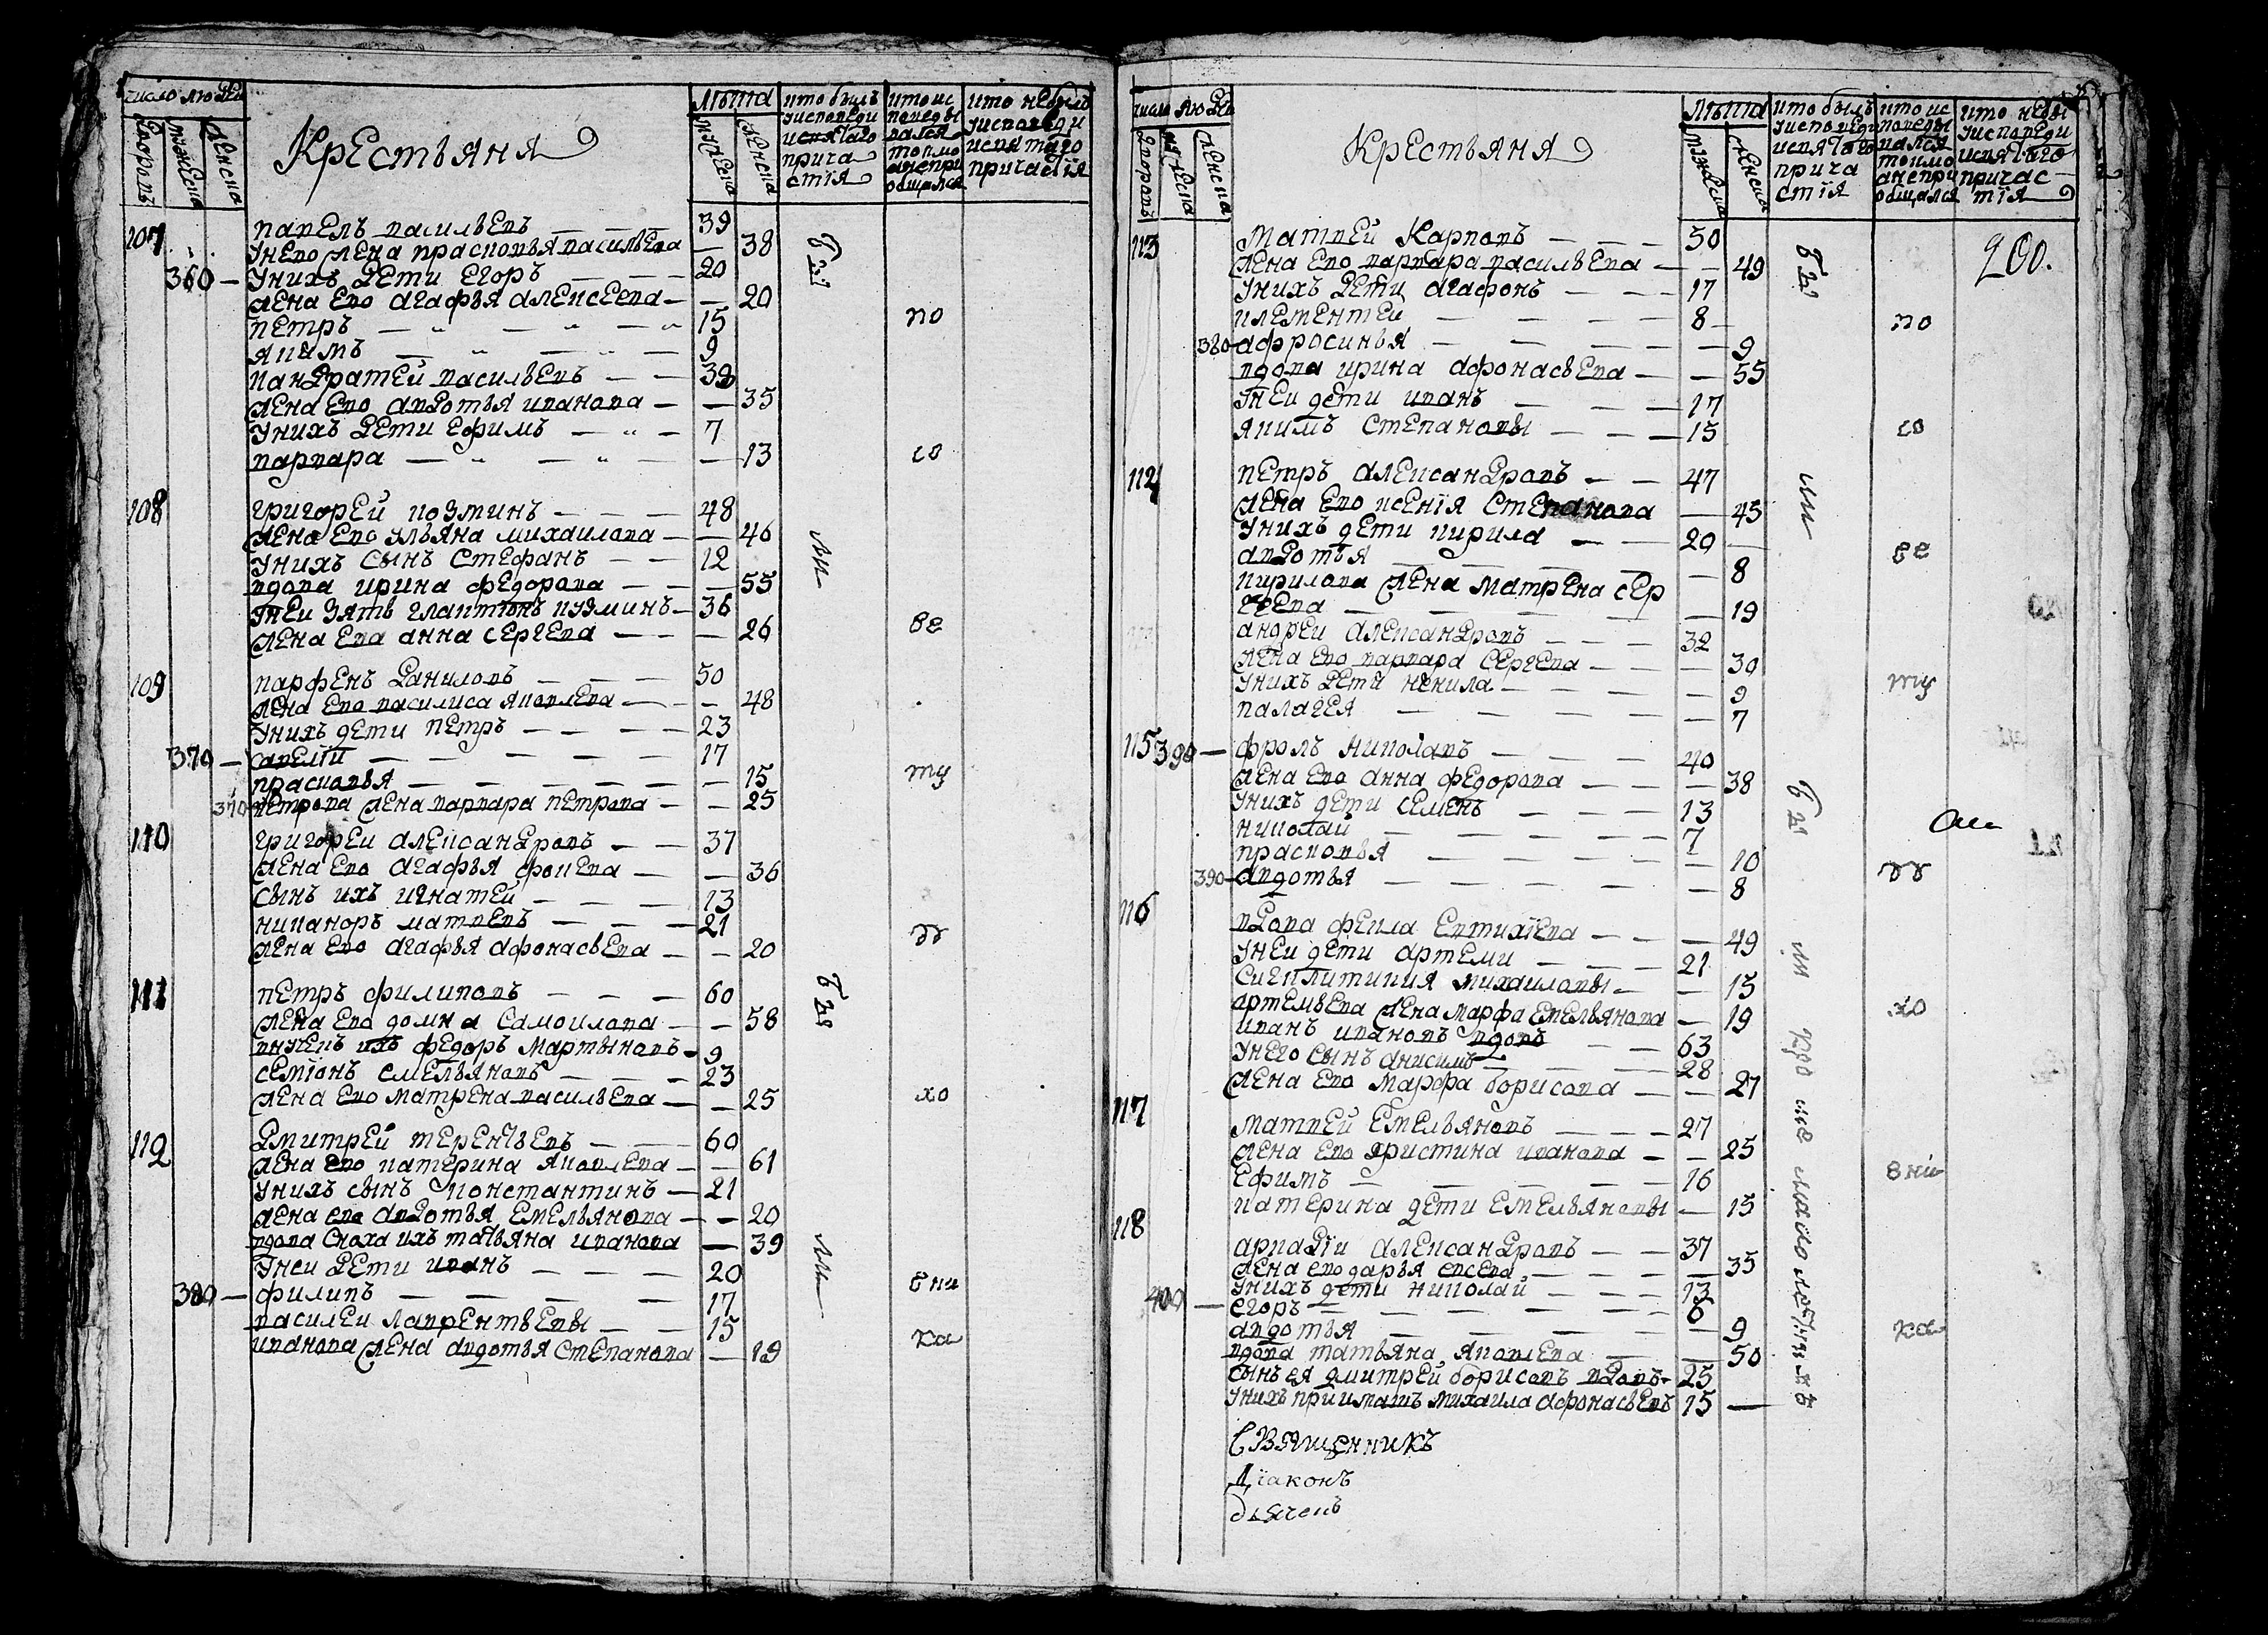 число людеи
дворовъ
мужеска
женска
Крестьяня
лѣта
мужеска
женска
кто былъ
уисповеди
исвятаго
прича
стїя
кто ис
поведы
вался
токмо
анепри
общался
кто небылъ
уисповеди
исвятаго
причастїя
107 павелъ васильевъ — — 39
унево жена прасковья васильева — 38
360 — унихъ дети егоръ — — — 20
жена ево агафья алексеева — — 20
петръ — — — 15
якимъ — — — 9
панкратей васильевъ — — 39
жена ево авдотья иванова — — 35
унихъ дети ефимъ — — 7
варвара — — — 13
108 григорей козминъ — — — 48
жена ево ульяна михаилова — — 46
унихъ сынъ стефанъ — — 12
вдова ирина федорова — — — 55
унеи зять галактїонъ кузминъ — 36
жена ева анна сергева — — — 26
109 парфенъ даниловъ — — — 50
жена ево василиса яковлева — — — 48
унихъ дети петръ — — — — 23
370 — савелїи — — — — — 17
прасковья — — — — — — 15
370 петрова жена варвара петрова — — 25
110 григореи александровъ — — 37
жена ево агафья фокева — — 36
сынъ ихъ игнатей — — — 13
никаноръ матвевъ — — — 21
жена ево агафья афонасьева — — 20
111 петръ филиповъ — — — 60
жена ево домна самоилова — — 58
внукъ ихъ федоръ мартыновъ — 9
семїонъ емельяновъ — — — 23
жена ево матрена васильева — — 25
112 дмитрей терентьевъ — — 60
жена ево катерина яковлева — — 61
унихъ сынъ константинъ — 21
жена ево авдотья емельянова — — 20
вдова сноха ихъ татьяна иванова — 39
унеи дети иванъ — — — 20
380 — филипъ — — — — 17
василеи лаврентьевы — — 15
иванова жена авдотья степанова — 19
бы
ли
бы
ли
по
со
ве
ту
дх
хо
вни
ка
число людеи
дворовъ
мужеска
женска
Крестьяня
лѣта
мужеска
женска
кто былъ
уисповеди
исвятаго
прича
стїя
кто ис
поведы
вался
токмо
анепри
общался
кто небы
уисповеди
исвятаго
причас
тїя
200.
113 матвей карповъ — — — 50
жена ево варвара васильева — — 49
унихъ дети агафонъ — — — 17
клементеи — — — — 8
380 — афросинья — — — — — 9
вдова ирина афонасьева — — 55
унеи дети иванъ — — — 17
якимъ степановы — — — 15
114 петръ александровъ — — 47
жена ево ксенїя степанова — 45
унихъ дети кирила — — 20
авдотья — — — — — 8
кирилова жена матрена сер
геева — — — — — 19
андреи александровъ — — — 32
жена ево варвара сергева — — — 30
унихъ дети ненила — — — — 9
палагея — — — — — 7
115 390 — фролъ николавъ — — — 40
жена ево анна федорова — — — 38
унихъ дети семенъ — — — 13
николай — — — — — 7
прасковья — — — — — 10
390 — авдотья — — — — — 8
116 вдова фекла евтихїева — — — 49
унеи дети артеми — — — 21
сигклитикия михаиловы — — 15
артемьева жена марфа емельянова — 19
иванъ ивановъ вдовъ — — 63
унего сынъ анисимъ — — — 28
жена ево марфа борисова — — — 27
117 матвей емельяновъ — — — 27
жена ево христина иванова — — 25
ефимъ — — — — — 16
катерина дети емельяновы — 15
118 аркадїи александровъ — — 37
жена ево дарья евсева — — — — 35
унихъ дети николай — — — 13
400 — егоръ — — — — — 6
авдотья — — — — — 9
вдова татьяна яковлева — — — 50
сынъ ея дмитрей борисовъ вдовъ — 25
унихъ приимашъ михаила афонасьевъ 15 —
бы
ли
бы
ли
по
со
ве
ту
дх
хо
вни
ка
Священникъ
Дїаконъ
дьячекъ